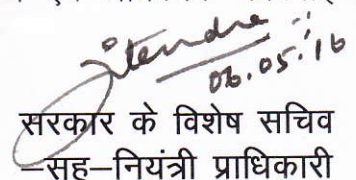 Jitendra
06.05.16
सरकार के विशेष सचिव
–सह–नियंत्री प्राधिकारी